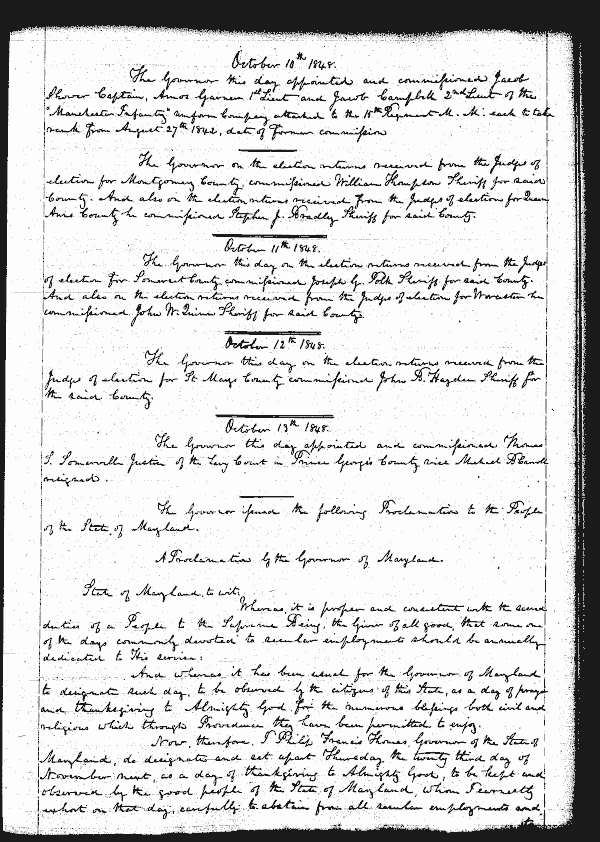 October 10th 1848.
The Governor this day appointed and commissioned Jacob
Shower Captain, Amos Garner 1st Lieut and Jacob Campbell 2nd Lieut of the
"Manchester Infantry" uniform Company attached to the 15th Regiment M. M: each to take
rank from August 27th 1842, date of former commission
The Governor on the election returns received from the Judges of
election for Montgomery County, commissioned William Thompson Sheriff for said
County. And also on the election returns received from the Judges of elections for Queen
Anns County he commissioned Stephen J. Bradley Sheriff for said County.
October 11th 1848.
The Governor this day on the election returns received from the Judges
of election for Somerset County commissioned Joseph G. Polk Sheriff for said County.
And also on the election returns received from the Judges of election for Worcester he
commissioned John W. Quinn Sheriff for said County
October 12th 1848.
The Governor this day on the election returns received from the
Judges of election for St Marys County commissioned John B. Hayden Sheriff for
the said County.
October 13th 1848.
The Governor this day appointed and commissioned Thomas
S. Somerville Justice of the Levy Court in Prince Georges County vice Michael B Carroll
resigned.
The Governor issued the following Proclamation to the People
of the State of Maryland.
A Proclamation by the Governor of Maryland.
State of Maryland, to wit:
Whereas, it is proper and consistent with the sacred
duties of a People to the Supreme Being, the Giver of all good, that some one
of the days commonly devoted to secular employments should be annually
dedicated to His service:
And whereas, it has been usual for the Governor of Maryland
to designate such day, to be observed by the citizens of this State, as a day of prayer
and thanksgiving to Almighty God, for the numerous blessings both civil and
religious which through Providence they have been permitted to enjoy.
Now, therefore, I Philip Francis Thomas, Governor of the State of
Maryland, do designate and set apart Thursday the twenty third day of
November next, as a day of thanksgiving to Almighty God, to be kept and
observed by the good people of the State of Maryland, whom I earnestly
exhort on that day, carefully to abstain from all secular employments and
to